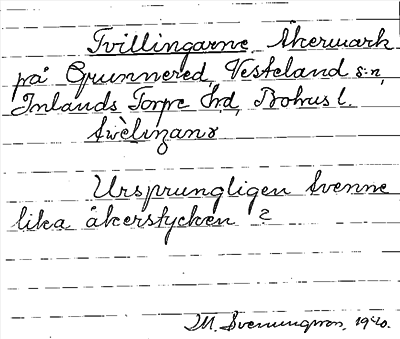 Tvillingarne, Åkermark
på Grunnered, Vesteland s:n,
Inlands Torpe hd, Bohus l.
Ursprungligen tvenne
lika åkerstycken ?
M. Svenungsson, 1940.